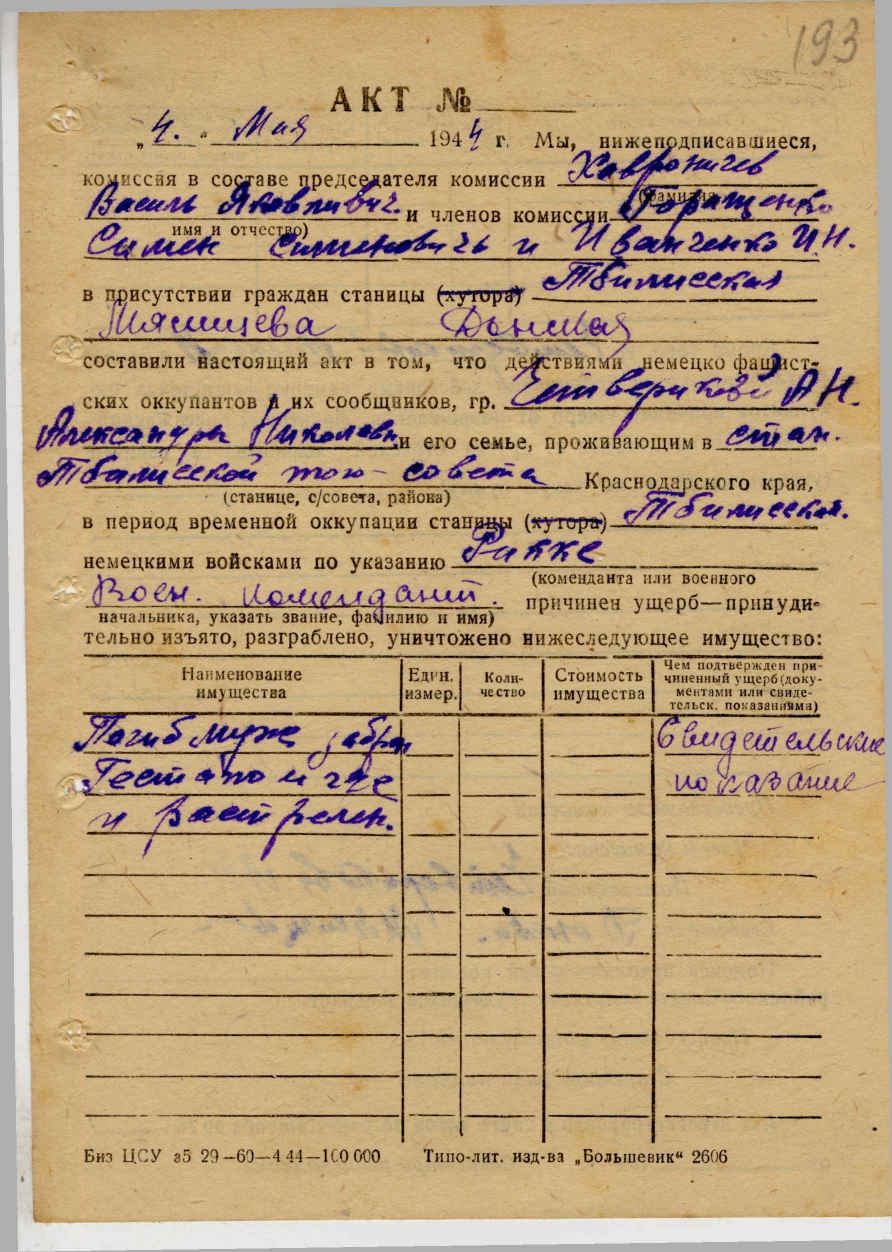 193
АКТ №
„4.“ Мая 1944 г. Мы, нижеподписавшиеся,
комиссия в составе председателя комиссии Хавроничев
(фамилия,
Василь Яковлевич. и членов комиссии Горащенко
имя и отчество)
Симен Сименовичь и Иванченко И.Н.
в присутствии граждан станицы (хутора) Тбилисская
Мясищева Донская
составили настоящий акт в том, что действиями немецко фашист-
ских оккупантов и их сообщников, гр. Четвериковой А Н.
Александры Николавн. и его семье, проживающим в стан.
Тбилисской тою-совета Краснодарского края,
(станице, с/совета, района)
в период временной оккупации станицы (хутора) Тбилисской.
немецкими войсками по указанию Рикке
(коменданта или военного
Воен. комендант. причинен ущерб—принуди-
начальника, указать звание, фамилию и имя)
тельно изъято, разграблено, уничтожено нижеследующее имущество:
Наименование имущества
Един. измер.
Коли-чество
Стоимость имущества
Чем подтвержден при-
чиненный ущерб (доку-
ментами или свиде-
тельск. показаниями)
Погиб муж забран Свидетельские
Гестапо и где показание
и растрелен.
Биз ЦСУ з5 29—60—4 44—100 000 Типо-лит. изд-ва „Большевик“ 2606